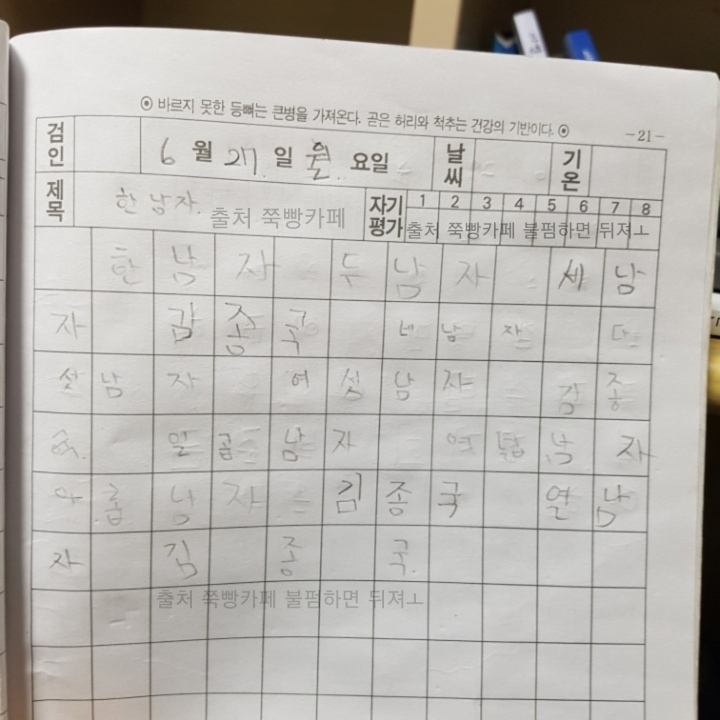 ⊙ 바르지 못한 등뼈는 큰병을 가져온다. 곧은 허리와 척추는 건강의 기반이다. ⊙ -21-
검인 6 월 27. 일 월 요일 날씨 기온
제목 한 남자. 출처 쭉빵카페 자기평가 1 2 3 4 5 6 7 8
출처 쭉빵카페 불펌하면 뒤져ㅗ
한 남 자 두 남 자 세 남
자 김 종 국 네 남 자 다
섯 남 자 여 섯 남 자 김 종
국. 일 곱 남 자 여 덟 남 자
아 홉 남 자 김 종 국 열 남
자 김 종 국.
출처 쭉빵카페 불펌하면 뒤져ㅗ